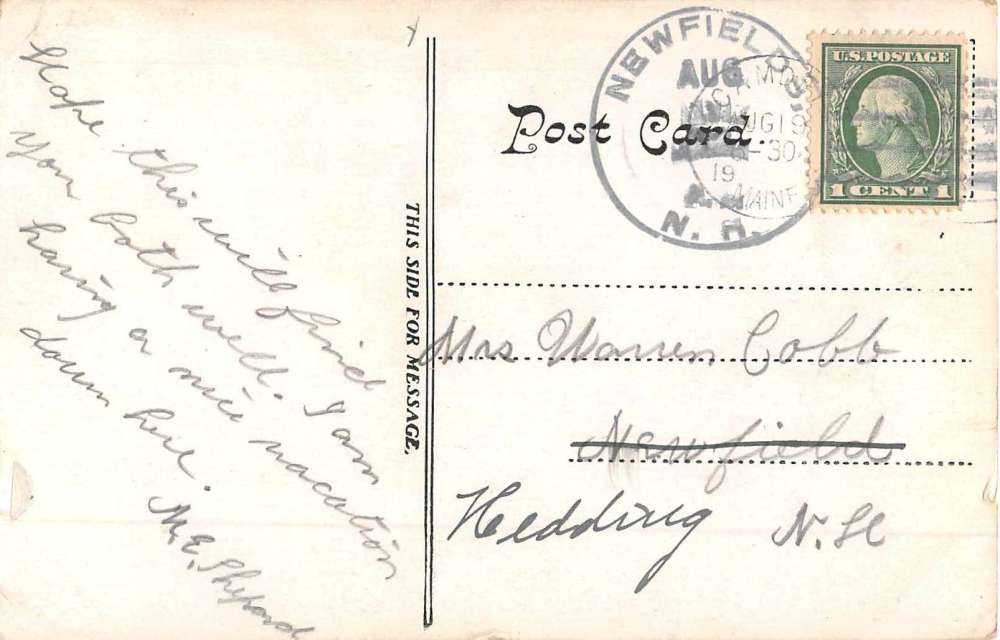 Hope this will find
you both well. I am
having a nice vacation
down here.
M. E. Shepard
THIS SIDE FOR MESSAGE.
Post Card.
NEWFIELDS,
AUG
19
A.M.
N. H.
CAMDEN
AUG 19
-30
MAINE
U.S. POSTAGE
1 CENT 1
Mrs Warren Cobb
Newfield
Hedding N. H